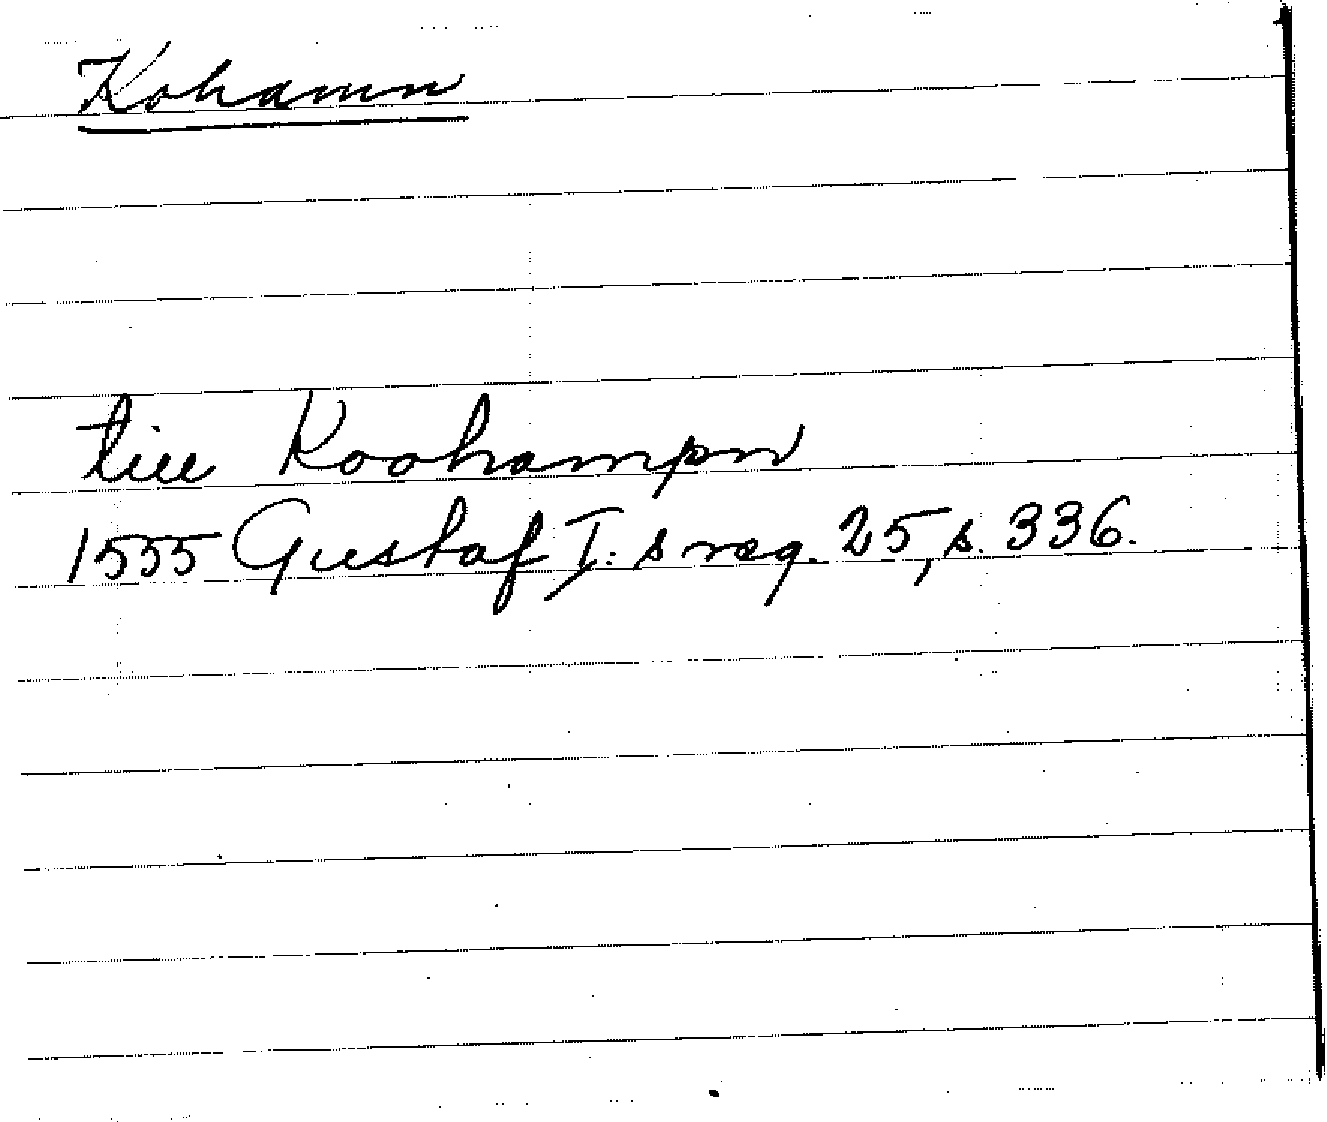 Kohamn
till Koohampn
1555 Gustaf I:s reg. 25, s. 336.